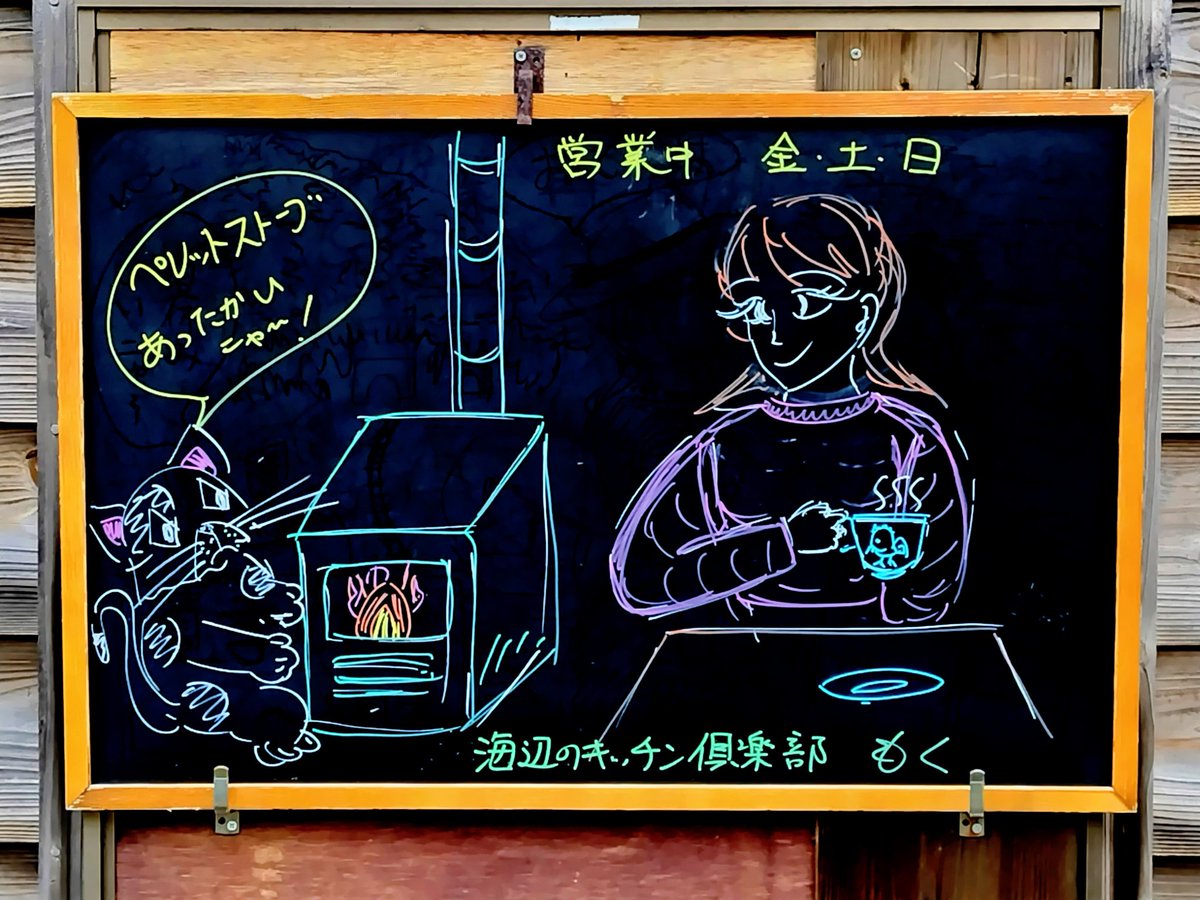 営業中 金・土・日
ペレットストーブ
あったかい
ニャ〜!
海辺のキッチン倶楽部 もく